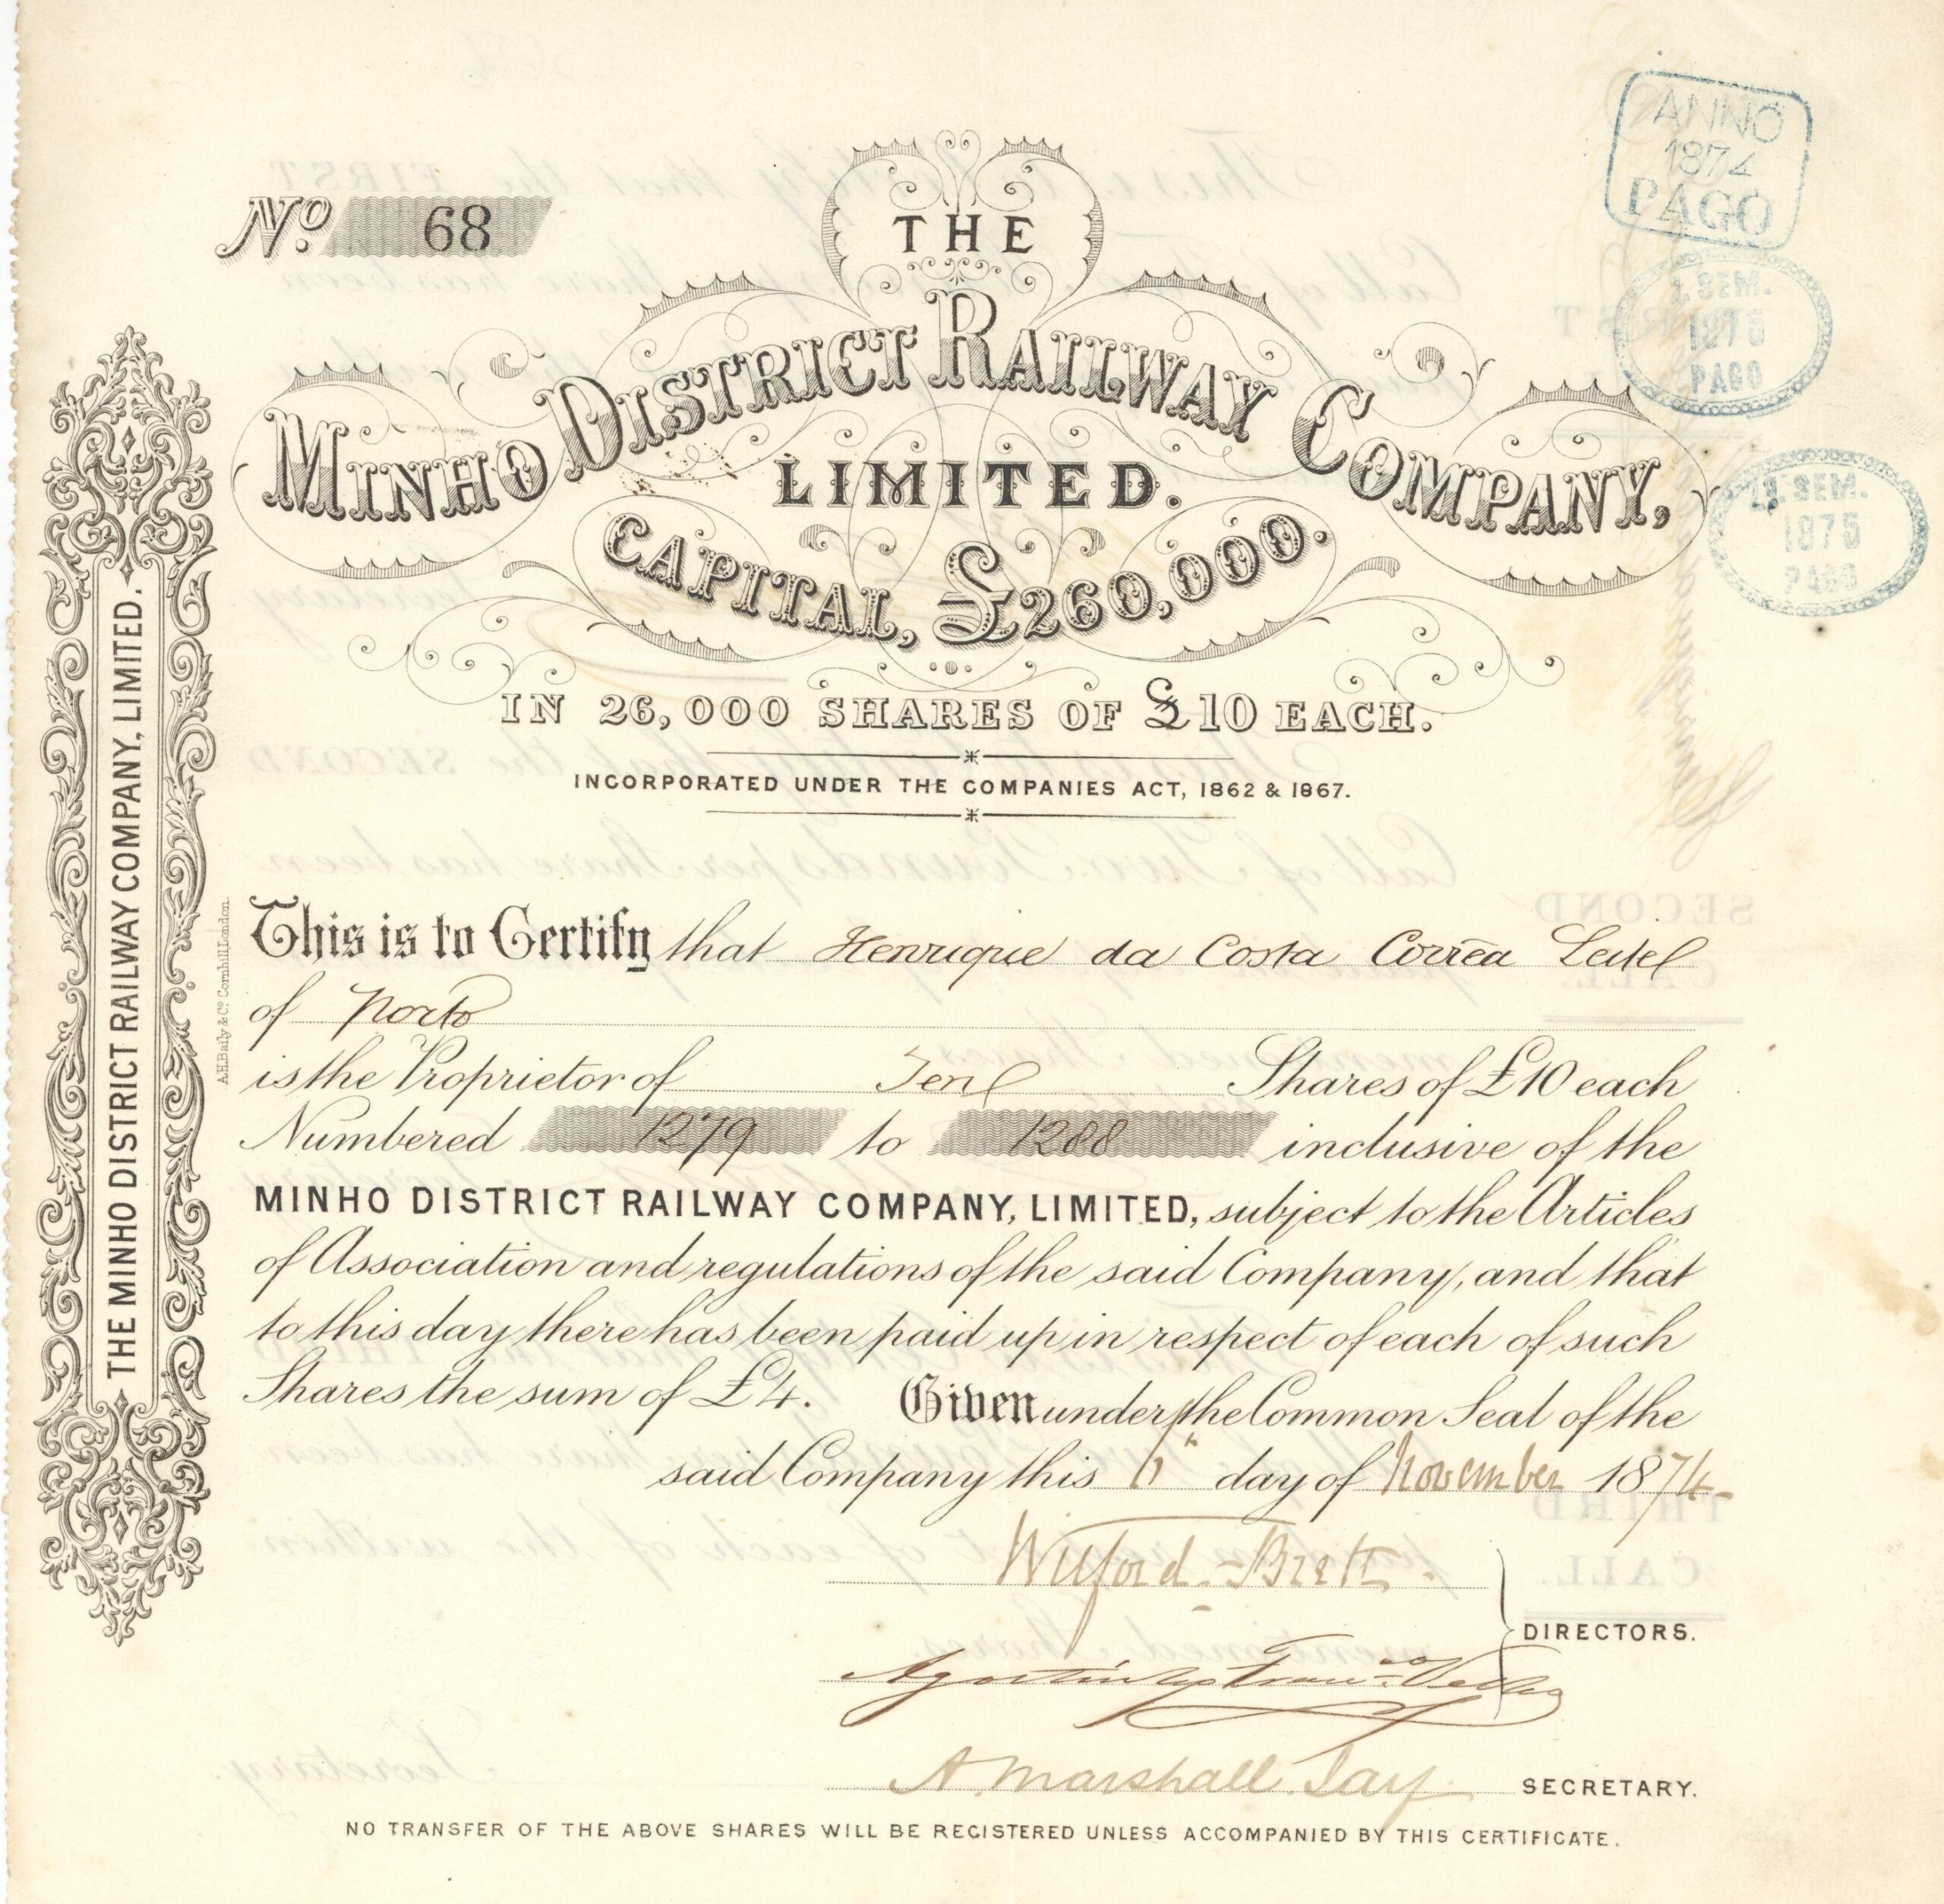 No. 68
ANNO
1874
PAGO
1. SEM.
1875
PAGO
SEM.
1875
PAGO
THE
MINHO DISTRICT RAILWAY COMPANY,
LIMITED.
CAPITAL, £260,000.
IN 26,000 SHARES OF £10 EACH.
INCORPORATED UNDER THE COMPANIES ACT, 1862 & 1867.
THE MINHO DISTRICT RAILWAY COMPANY, LIMITED.
A.H.Baily & Co. Cornhill London.
This is to Certify that Henrique da Costa Corrêa Leite
of Porto
is the Proprietor of Ten Shares of £10 each
Numbered 1279 to 1288 inclusive of the
MINHO DISTRICT RAILWAY COMPANY, LIMITED, subject to the Articles
of Association and regulations of the said Company, and that
to this day there has been paid up in respect of each of such
Shares the sum of £4. Given under the Common Seal of the
said Company this day of November 1874
Wilford Brett.
DIRECTORS.
A. Marshall Jay SECRETARY.
NO TRANSFER OF THE ABOVE SHARES WILL BE REGISTERED UNLESS ACCOMPANIED BY THIS CERTIFICATE.